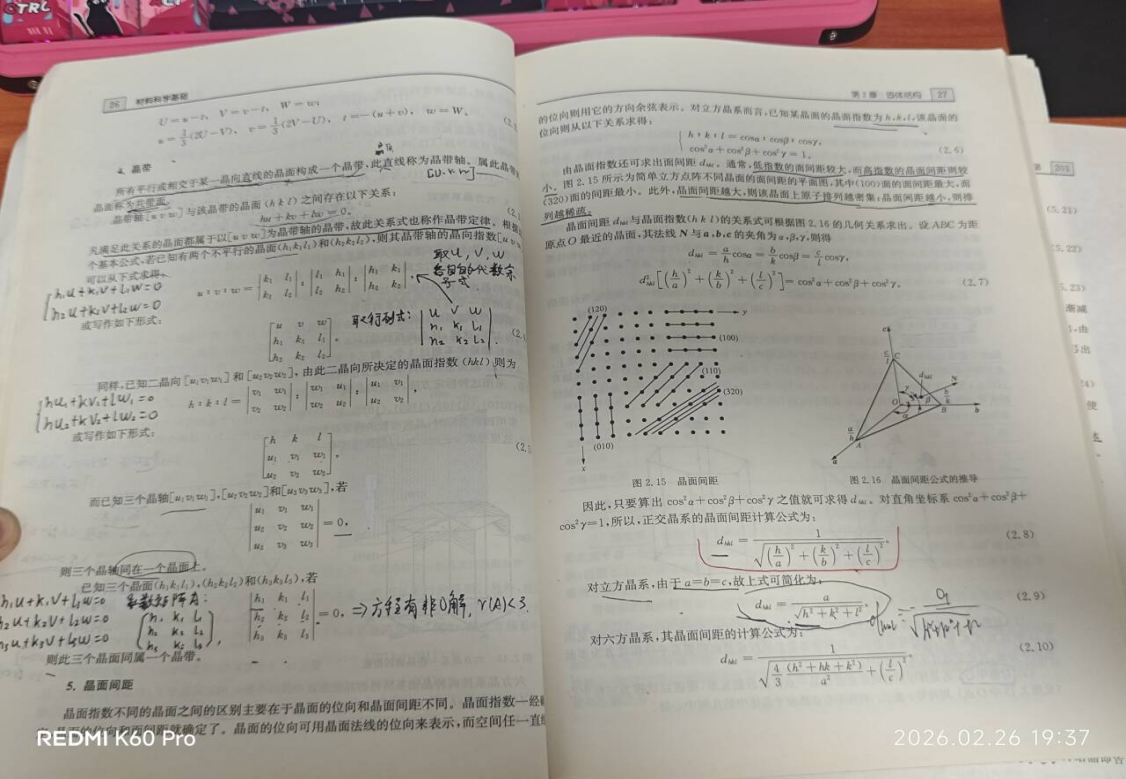 26 材料科学基础
U = u-t, V = v-t, W = w;
u = 1/3(2U-V), v = 1/3(2V-U), t = -(u+v), w = W。
4. 晶带
所有平行或相交于某一晶向直线的晶面构成一个晶带,此直线称为晶带轴。属此晶带
[u v w]
晶面称为共带面。
晶带轴[u v w]与该晶带的晶面(h k l)之间存在以下关系:
hu + kv + lw = 0。
凡满足此关系的晶面都属于以[u v w]为晶带轴的晶带,故此关系式也称作晶带定律。根据
个基本公式,若已知有两个不平行的晶面(h₁k₁l₁)和(h₂k₂l₂),则其晶带轴的晶向指数[u v w
可以从下式求得:
取U, V, W
各自的代数余
子式
h₁u+k₁v+l₁w=0
h₂u+k₂v+l₂w=0
u : v : w = |k₁ l₁| : |l₁ h₁| : |h₁ k₁|,
|k₂ l₂| |l₂ h₂| |h₂ k₂|
或写作如下形式:
取行列式:
|u v w|
|h₁ k₁ l₁|
|h₂ k₂ l₂|
[u v w]
[h₁ k₁ l₁]。
[h₂ k₂ l₂]
同样,已知二晶向[u₁v₁w₁]和[u₂v₂w₂],由此二晶向所决定的晶面指数(hkl)则为
hu₁+kv₁+lw₁=0
hu₂+kv₂+lw₂=0
h : k : l = |v₁ w₁| : |w₁ u₁| : |u₁ v₁|,
|v₂ w₂| |w₂ u₂| |u₂ v₂|
或写作如下形式:
[h k l]
[u₁ v₁ w₁]。
[u₂ v₂ w₂]
而已知三个晶轴[u₁v₁w₁],[u₂v₂w₂]和[u₃v₃w₃],若
|u₁ v₁ w₁|
|u₂ v₂ w₂| = 0,
|u₃ v₃ w₃|
则三个晶轴同在一个晶面上。
已知三个晶面(h₁k₁l₁),(h₂k₂l₂)和(h₃k₃l₃),若
h₁u+k₁v+l₁w=0
h₂u+k₂v+l₂w=0
h₃u+k₃v+l₃w=0
系数矩阵A:
(h₁ k₁ l₁)
(h₂ k₂ l₂),
(h₃ k₃ l₃)
|h₁ k₁ l₁|
|h₂ k₂ l₂| = 0,
|h₃ k₃ l₃|
⇒ 方程有非0解, r(A)<3.
则此三个晶面同属一个晶带。
5. 晶面间距
晶面指数不同的晶面之间的区别主要在于晶面的位向和晶面间距不同。晶面指数一经
晶面的位向和面间距就确定了。晶面的位向可用晶面法线的位向来表示,而空间任一直线
第2章 固体结构 27
的位向则用它的方向余弦表示。对立方晶系而言,已知某晶面的晶面指数为h,k,l,该晶面的
位向则从以下关系求得:
h : k : l = cosα : cosβ : cosγ,
cos²α + cos²β + cos²γ = 1。
(2.6)
由晶面指数还可求出面间距 dhkl。通常,低指数的面间距较大,而高指数的晶面间距则较
小。图2.15所示为简单立方点阵不同晶面的面间距的平面图,其中(100)面的面间距最大,而
(320)面的间距最小。此外,晶面间距越大,则该晶面上原子排列越密集;晶面间距越小,则排
列越稀疏。
晶面间距 dhkl 与晶面指数(h k l)的关系式可根据图2.16的几何关系求出。设ABC为距
原点O最近的晶面,其法线N与a,b,c的夹角为α,β,γ,则得
dhkl = a/h cosα = b/k cosβ = c/l cosγ,
d²hkl[(h/a)² + (k/b)² + (l/c)²] = cos²α + cos²β + cos²γ。
(2.7)
(120)
y
(100)
(110)
(320)
(010)
x
c
C
dhkl
N
O
γ
β
α
B
b
A
a
图2.15 晶面间距
图2.16 晶面间距公式的推导
因此,只要算出 cos²α + cos²β + cos²γ 之值就可求得 dhkl。对直角坐标系 cos²α + cos²β +
cos²γ = 1,所以,正交晶系的晶面间距计算公式为:
dhkl = 1/√((h/a)² + (k/b)² + (l/c)²)。
(2.8)
对立方晶系,由于 a=b=c,故上式可简化为:
dhkl = a/√(h² + k² + l²)。
(2.9)
对六方晶系,其晶面间距的计算公式为:
dhkl = 1/√(4/3 (h² + hk + k²)/a² + (l/c)²)。
(2.10)
205
(5.21)
5.22)
5.23)
渐减
REDMI K60 Pro
2026.02.26 19:37